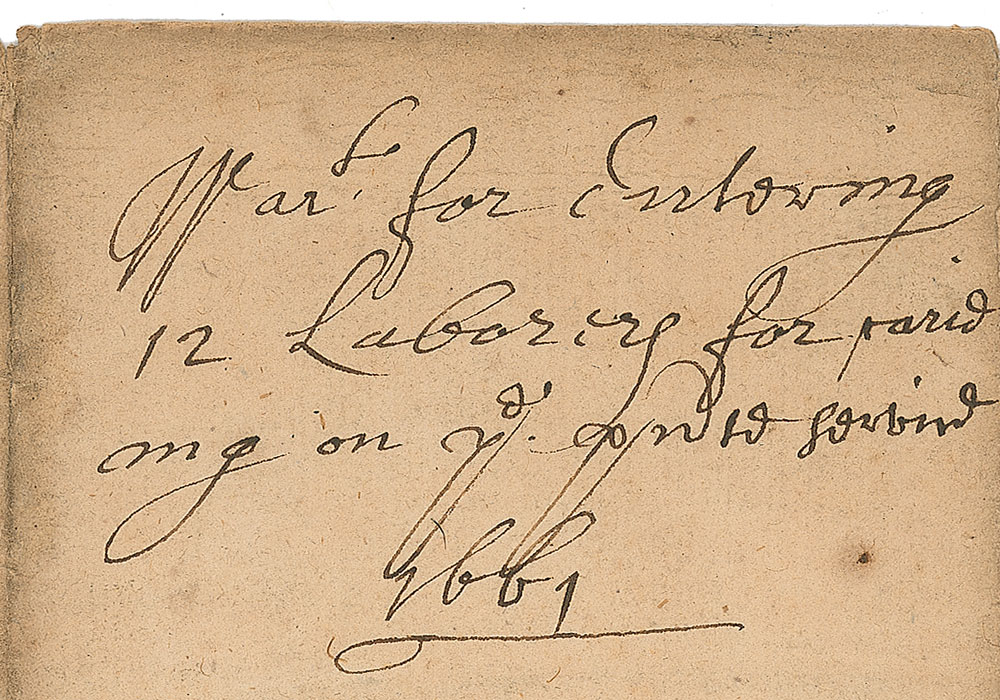 War.t for Entering
12 Laborers for carie
ing on ye. service
1661